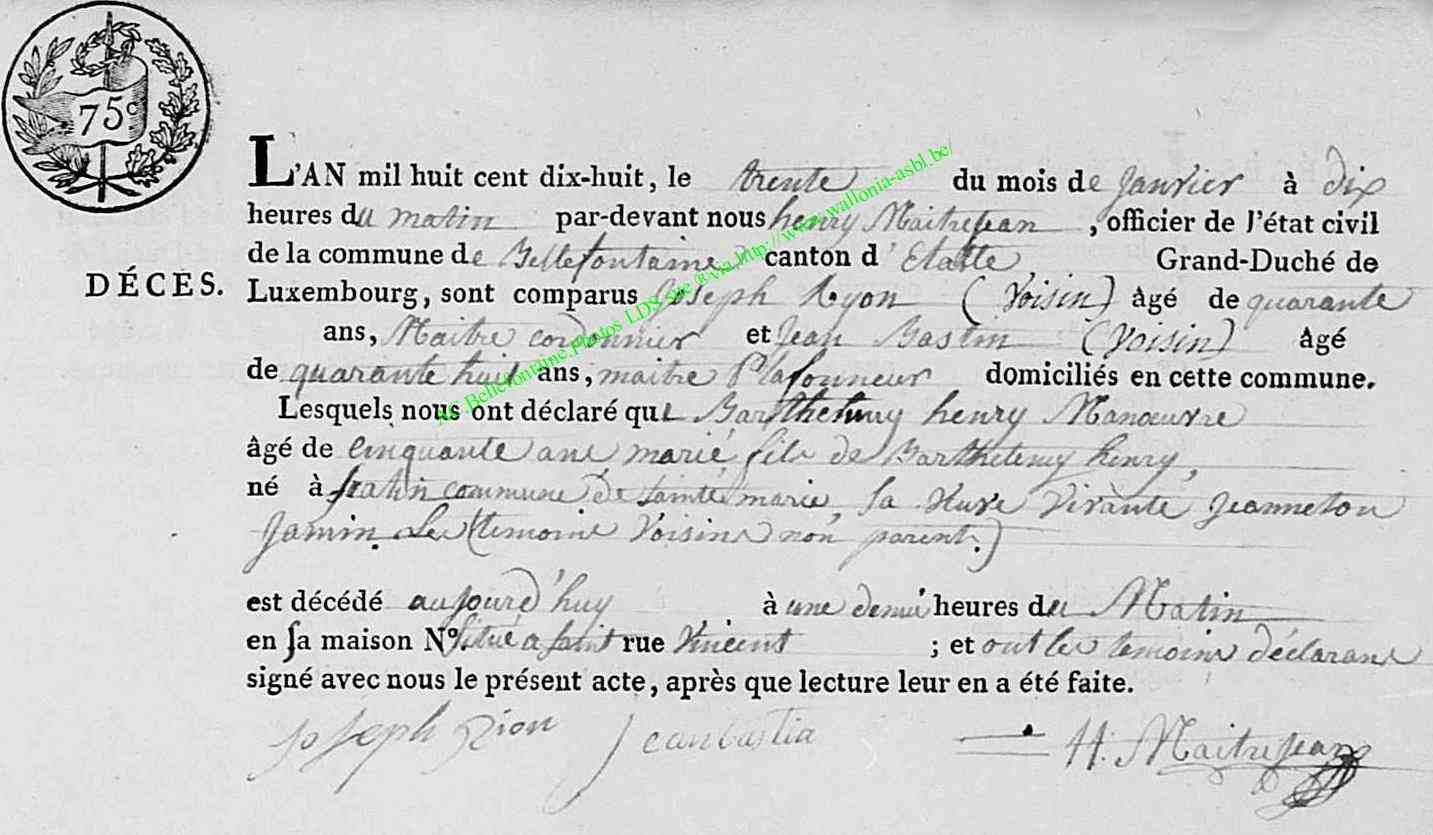 75c
L'AN mil huit cent dix-huit, le trente du mois de janvier à dix
heures du matin par-devant nous henry Maitrejean, officier de l'état civil
de la commune de Bellefontaine canton d'Etalle, Grand-Duché de
DÉCÈS.
Luxembourg, sont comparus Joseph Ryon (Voisin) âgé de quarante
ans, Maitre cordonnier et Jean Bastin (Voisin) âgé
de quarante huit ans, maitre Plafonneur domiciliés en cette commune.
Lesquels nous ont déclaré que Barthelemy henry Manœuvre
âgé de cinquante ans, marié, fils de Barthelemy henry,
né à fratin commune de Sainte marie, la Vivante Jeanneton
Jamin. Les (temoins Voisins non parent.)
est décédé aujourd'huy à une demi heures du Matin
en sa maison N° situé a saint rue Vincent ; et ont les temoins déclarans
signé avec nous le présent acte, après que lecture leur en a été faite.
Joseph Rion Jean bastin H. Maitrejean
AC Bellefontaine, Photos LDS, site & via http://www.wallonia-asbl.be/